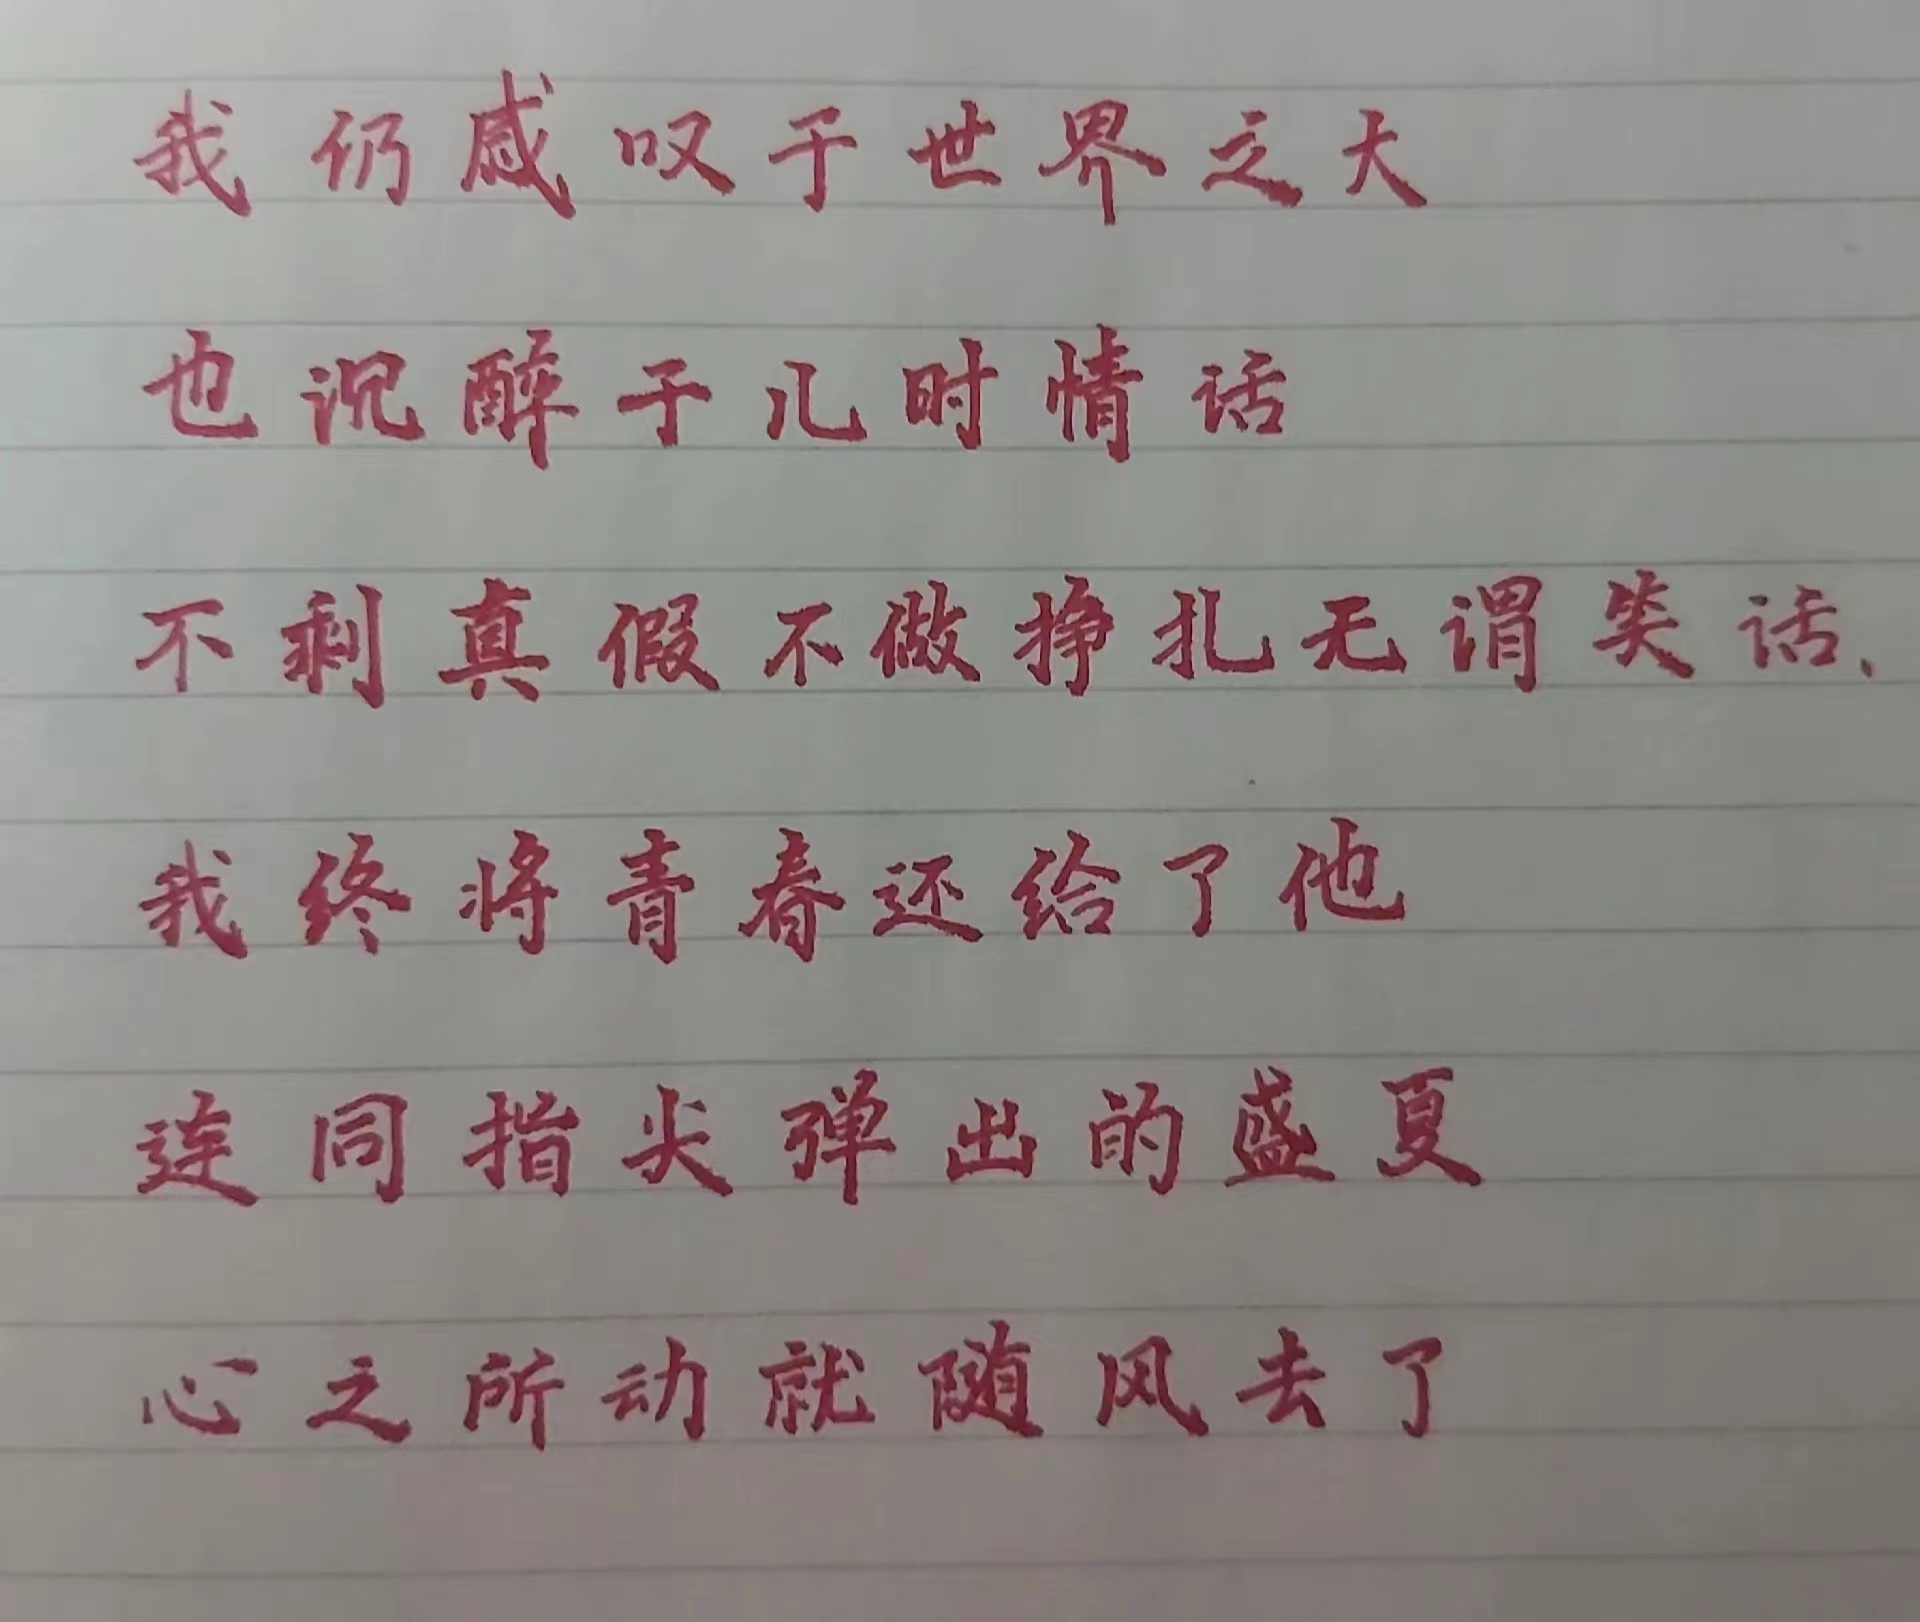 我仍感叹于世界之大
也沉醉于儿时情话
不剩真假不做挣扎无谓笑话、
我终将青春还给了他
连同指尖弹出的盛夏
心之所动就随风去了